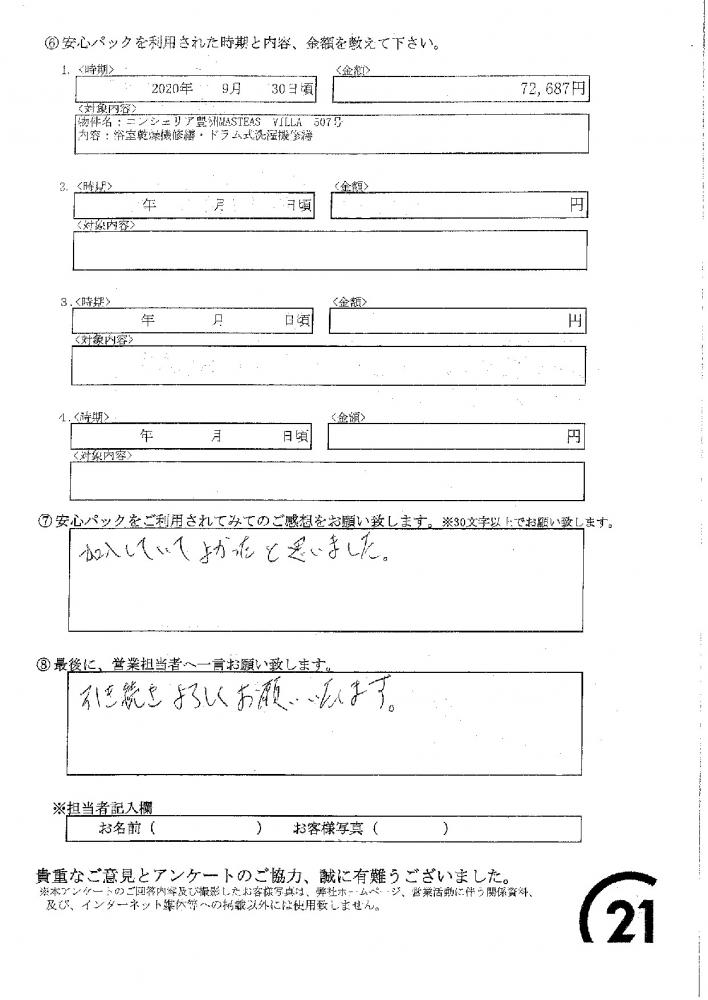 ⑥安心パックを利用された時期と内容、金額を教えて下さい。
1.<時期> <金額>
2020年 9月 30日頃 72,687円
<対象内容>
物件名:コンシェリア豊洲MASTEAS VILLA 507号
内容:浴室乾燥機修繕・ドラム式洗濯機修繕
2.<時期> <金額>
年 月 日頃 円
<対象内容>
3.<時期> <金額>
年 月 日頃 円
<対象内容>
4.<時期> <金額>
年 月 日頃 円
<対象内容>
⑦安心パックをご利用されてみてのご感想をお願い致します。※30文字以上でお願い致します。
加入していてよかったと思いました。
⑧最後に、営業担当者へ一言お願い致します。
引き続きよろしくお願いいたします。
※担当者記入欄
お名前( ) お客様写真( )
貴重なご意見とアンケートのご協力、誠に有難うございました。
※本アンケートのご回答内容及び撮影したお客様写真は、弊社ホームページ、営業活動に伴う関係資料、
及び、インターネット媒体等への掲載以外には使用致しません。
21